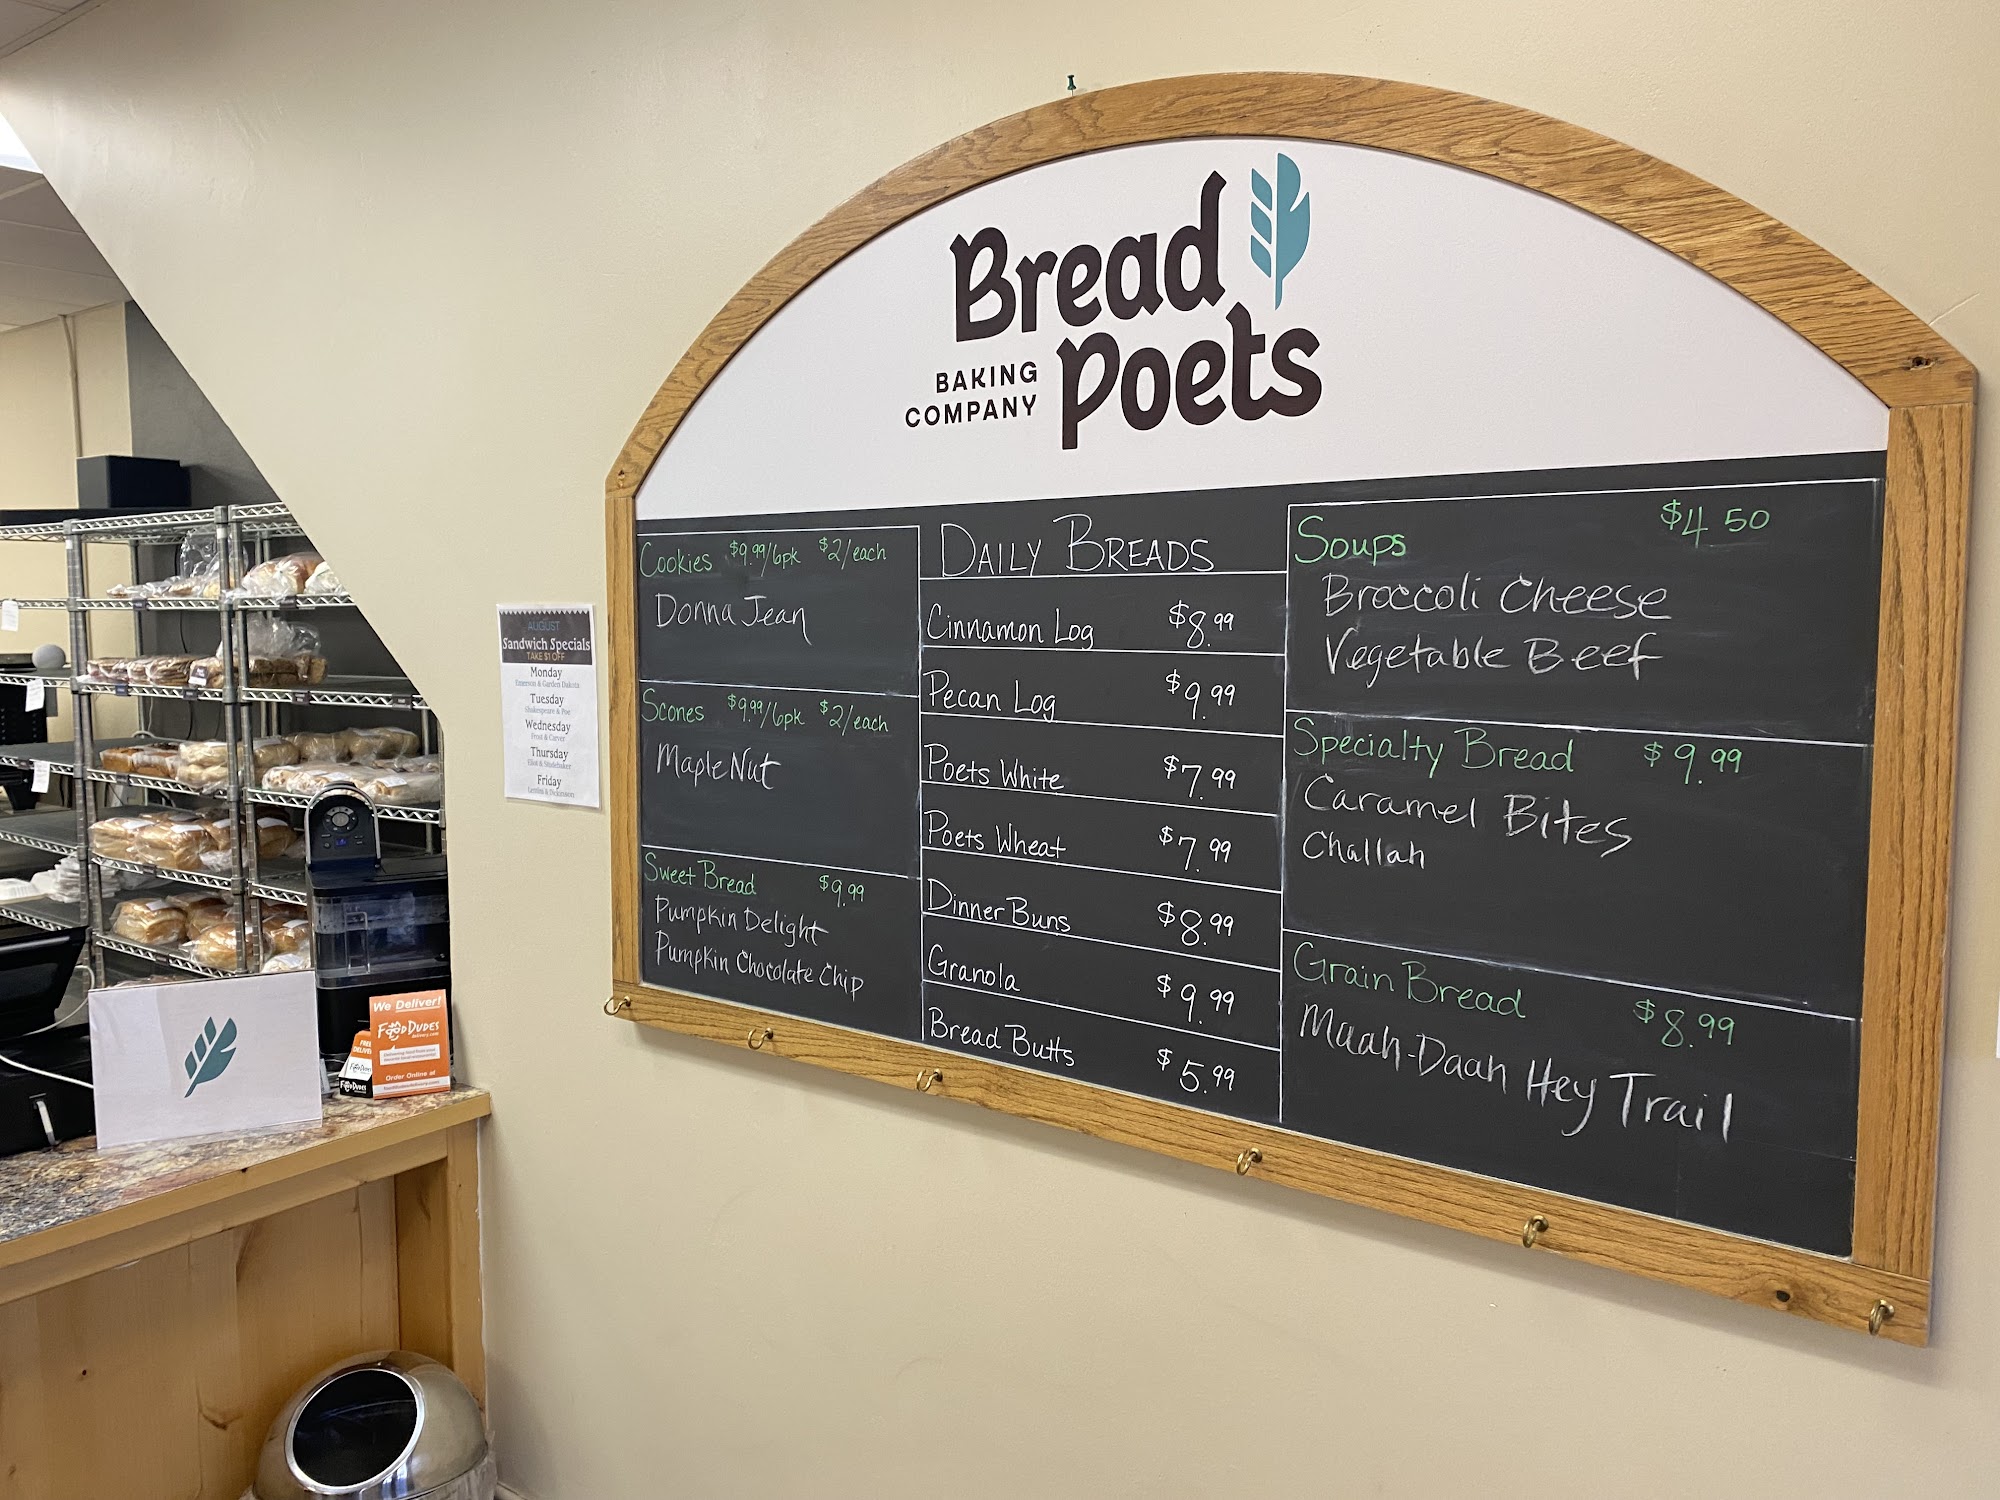 Bread
Poets
BAKING
COMPANY
Cookies $9.99/6pk $2/each
Donna Jean
Scones $9.99/6pk $2/each
Maple Nut
Sweet Bread $9.99
Pumpkin Delight
Pumpkin Chocolate Chip
DAILY BREADS
Cinnamon Log $8.99
Pecan Log $9.99
Poets White $7.99
Poets Wheat $7.99
Dinner Buns $8.99
Granola $9.99
Bread Butts $5.99
Soups $4 50
Broccoli Cheese
Vegetable Beef
Specialty Bread $9.99
Caramel Bites
Challah
Grain Bread $8.99
Maah-Daah Hey Trail
AUGUST
Sandwich Specials
TAKE $1 OFF
Monday
Emerson & Garden Dakota
Tuesday
Shakespeare & Poe
Wednesday
Frost & Carver
Thursday
Eliot & Studebaker
Friday
& Dickinson
We Deliver!
FOOD DUDES
Order Online at